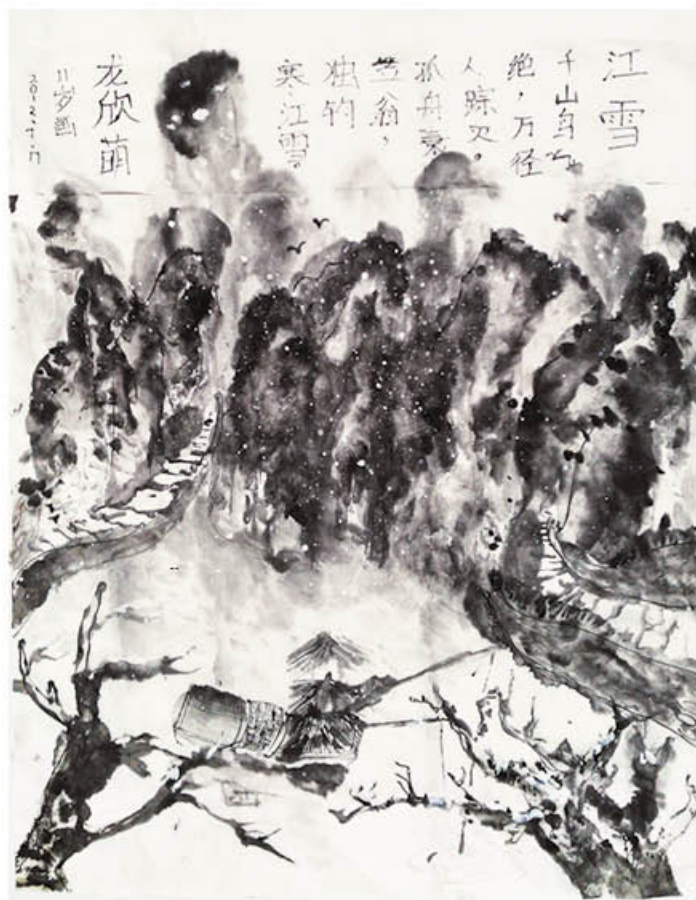 江雪
千山鸟飞
绝，万径
人踪灭。
孤舟蓑
笠翁，
独钓
寒江雪。
龙欣萌
11岁画